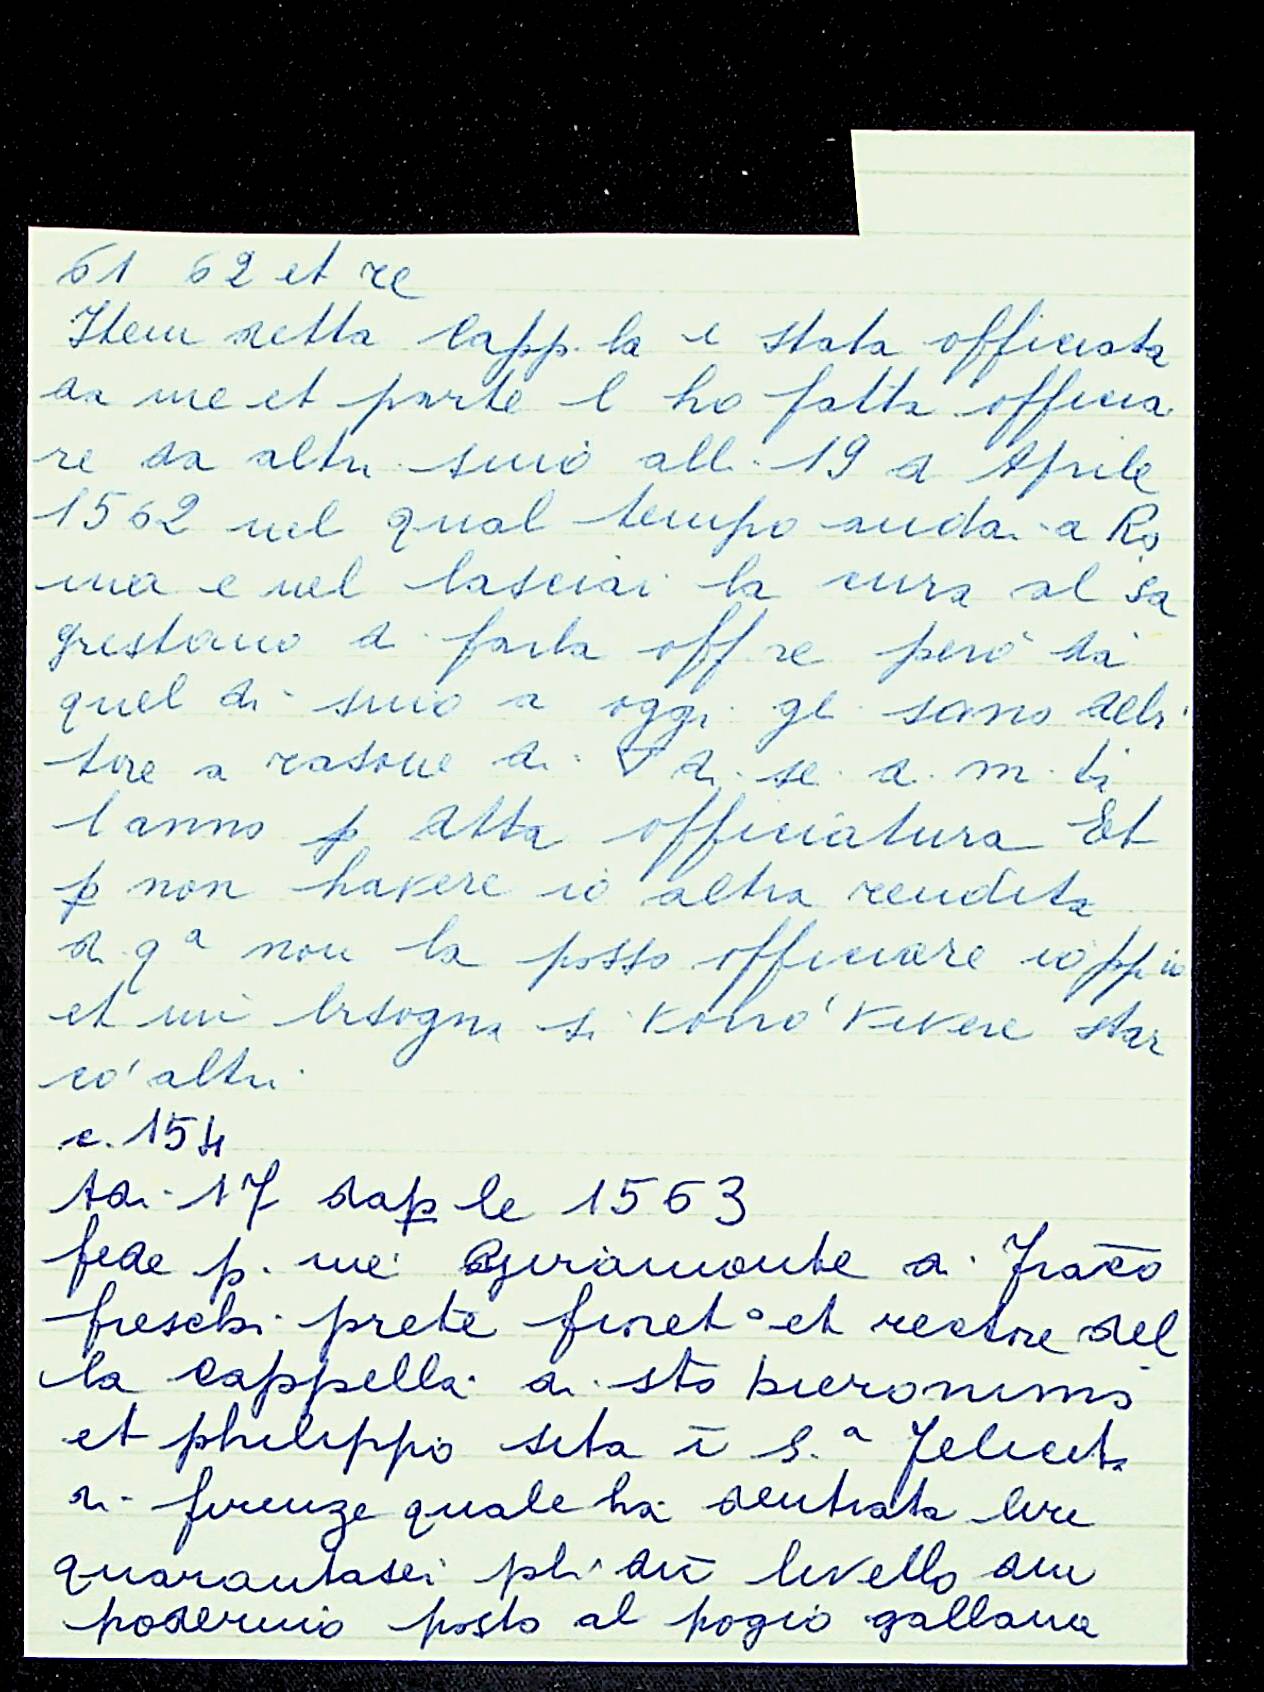 61 62 et re
Item detta Capp.la è stata officiata
da me et parte l ho fatta officia
re da altri sino alli 19 d Aprile
1562 nel qual tempo andai a Ro
ma e nel lasciai la cura al Sa
grestano di farla off re però da
quel di sino a oggi gli sono debi
tore a rasone di ∇ di se d. m. ta
l anno p̲ dtta officiatura Et
p̲ non havere io altra rendita
di qª non la posso officiare io ppio
et mi bisogna si vorrò vivere star
cō altri
c. 154
Adi 17 dap̲le 1563
fede p. me Agiramonte di Fraco
freschi prete fioretº et rectore del
la cappella di sto hieronimo
et philippo sita ī S.ª Felicita
di firenze quale ha dentrata lire
quarantasei pli dū livello dun
poderino posto al pogio gallana